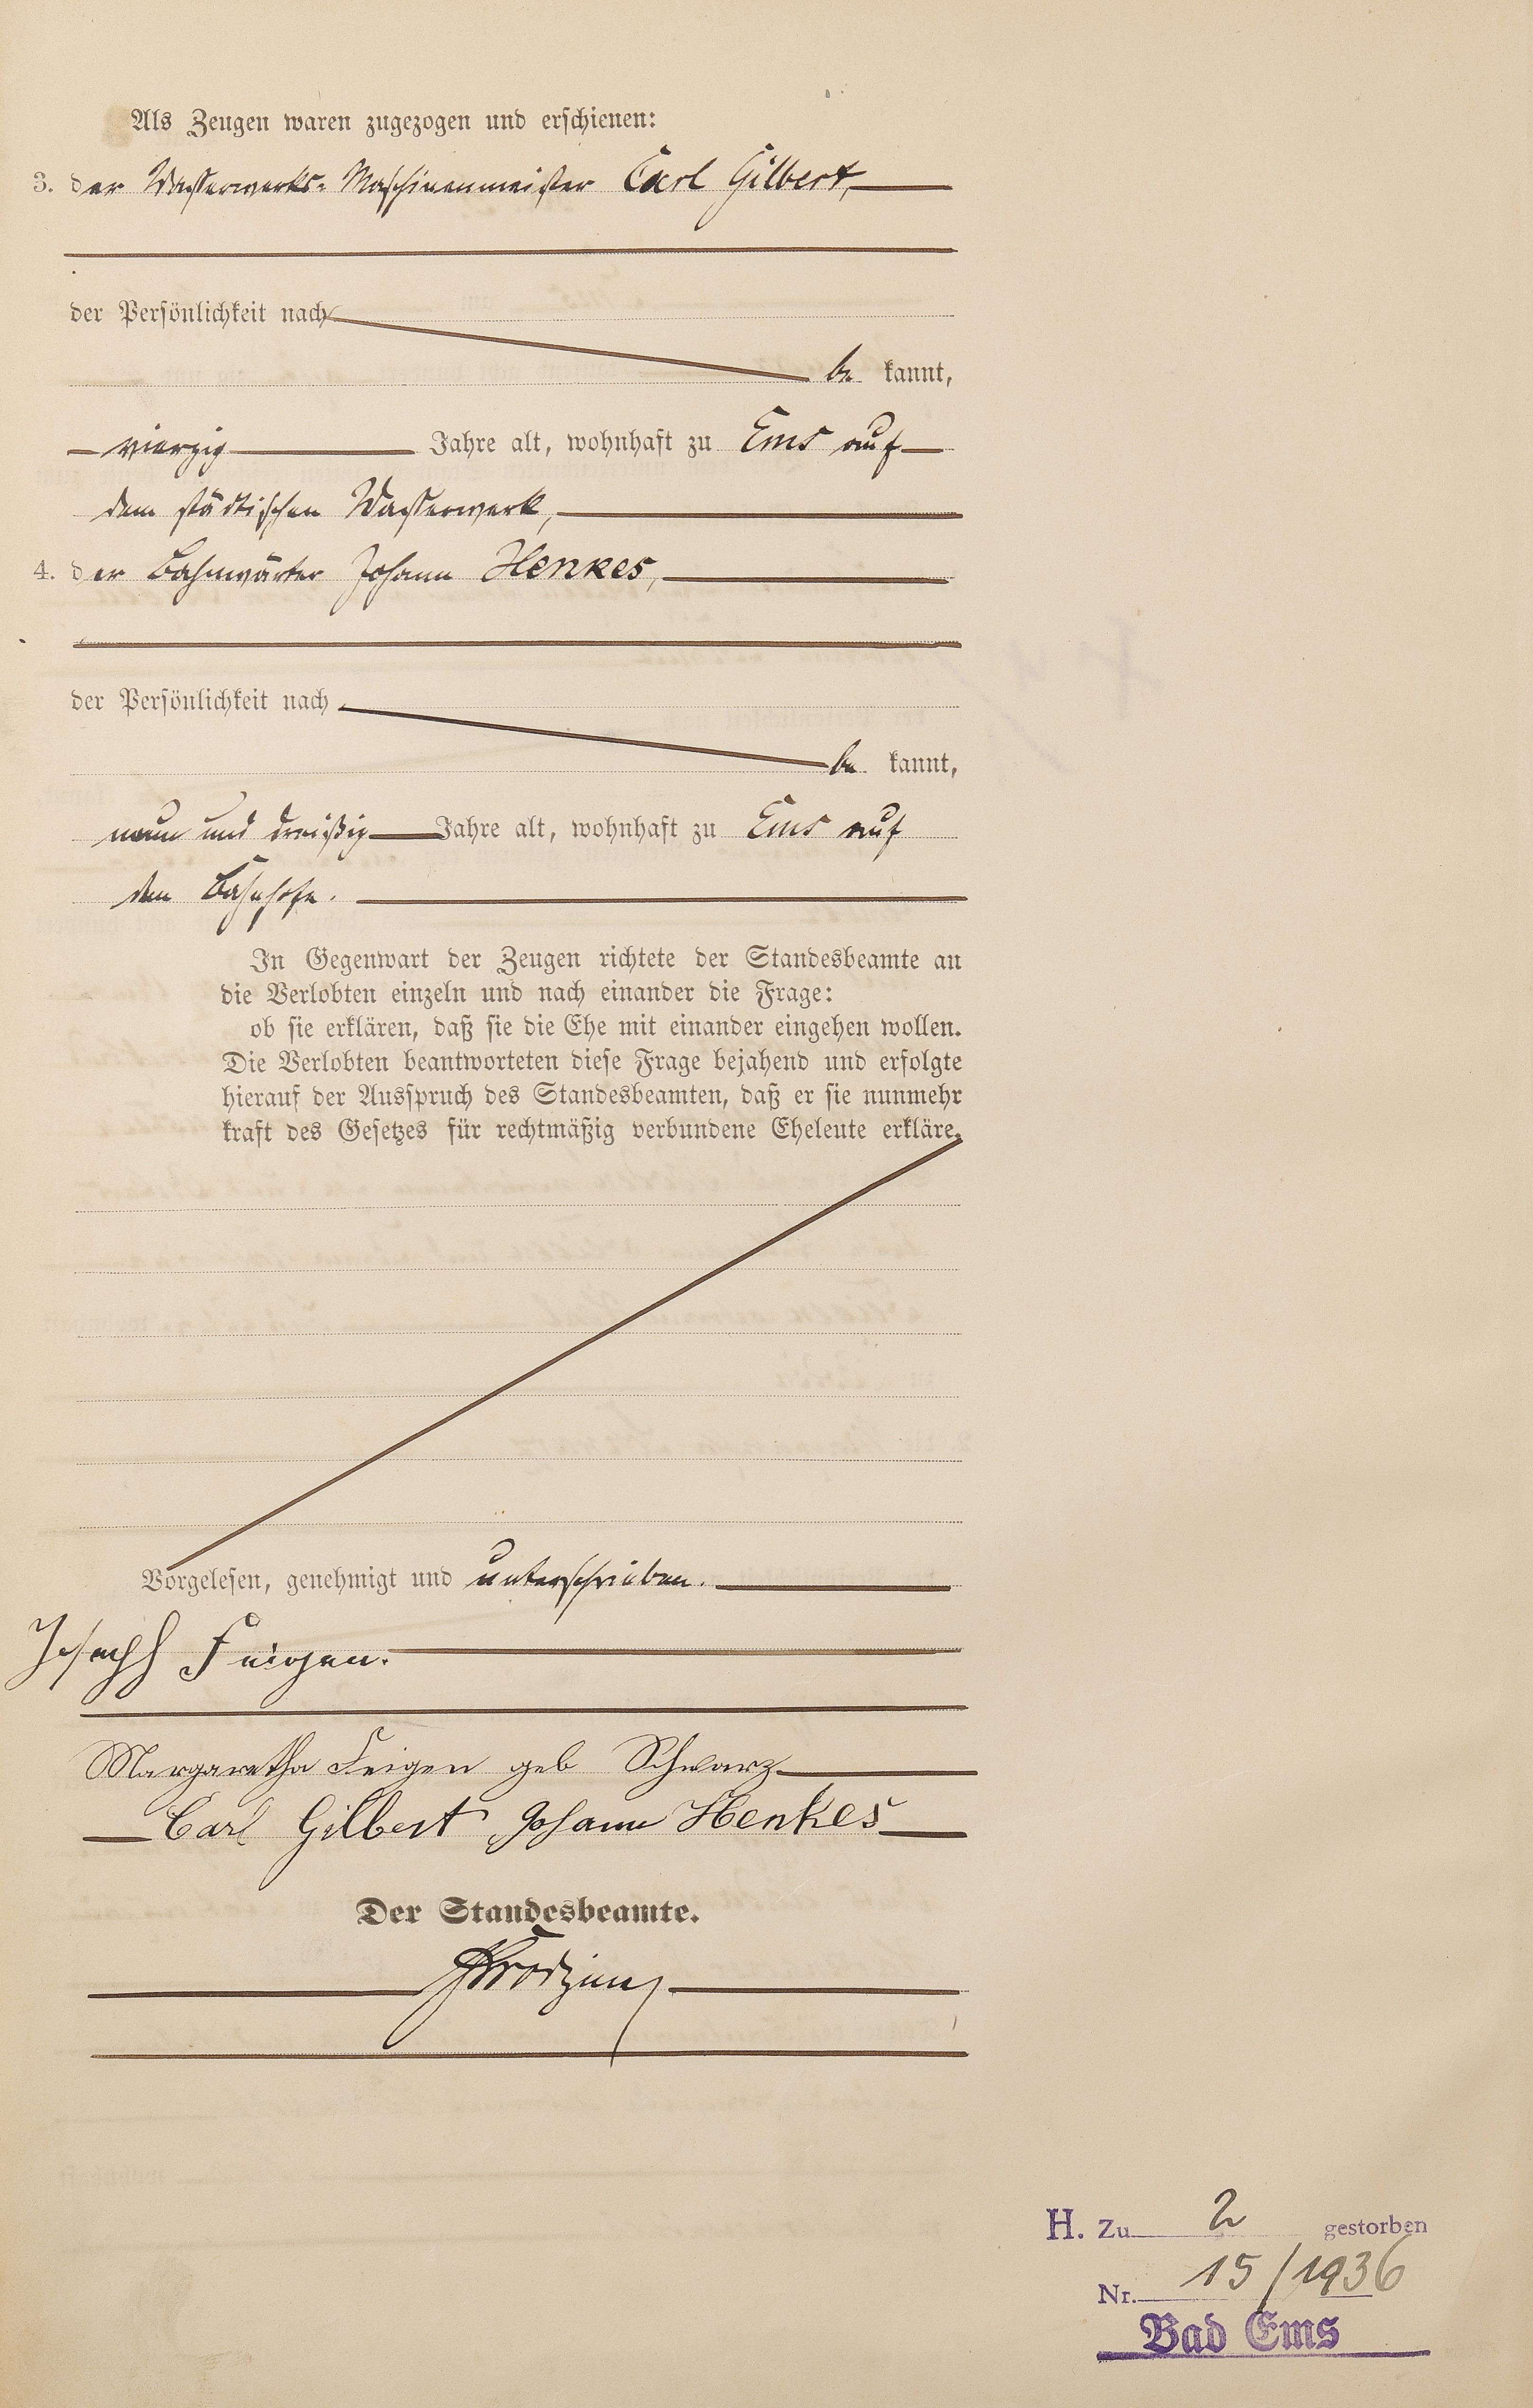 Als Zeugen waren zugezogen und erschienen:
3. der Wasserwerks-Maschinenmeister Carl Gilbert,
der Persönlichkeit nach
be kannt,
vierzig Jahre alt, wohnhaft zu Ems auf
dem städtischen Wasserwerk,
4. der Bahnwärter Johann Henkes,
der Persönlichkeit nach
be kannt,
neun und dreißig Jahre alt, wohnhaft zu Ems auf
dem Bahnhofe.
In Gegenwart der Zeugen richtete der Standesbeamte an
die Verlobten einzeln und nach einander die Frage:
ob sie erklären, daß sie die Ehe mit einander eingehen wollen.
Die Verlobten beantworteten diese Frage bejahend und erfolgte
hierauf der Ausspruch des Standesbeamten, daß er sie nunmehr
kraft des Gesetzes für rechtmäßig verbundene Eheleute erkläre.
Vorgelesen, genehmigt und unterschrieben.
Joseph Feigen.
Margaretha Feigen geb Schwarz
Carl Gilbert Johann Henkes
Der Standesbeamte.
H. Zu 2 gestorben
Nr. 15/1936
Bad Ems